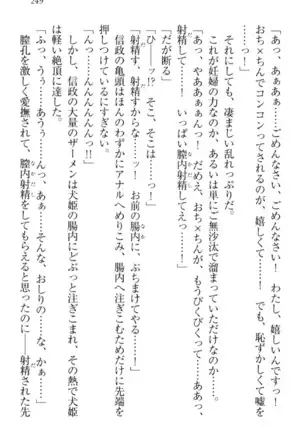 249
「あぁっ、あぁぁ……っ、ごめんなさい、ごめんなさい! わたし、嬉しいんです、
おち×ちんでコンコンってされるのが、嬉しくて……っ! でも、恥ずかしくて嘘を
……っ、あぁぁ……っ、ごめんなさいぃ……っ!」
それにしても、凄まじい乱れっぷりだ。
これが妊婦の力なのか、あるいは単にご無沙汰で溜まっていただけなのか──。
「あっ、やああぁぁんっ! だめえ、おち×ちん、もうびくびくって……ああっ、
射精して……っ! いっぱい膣内射精してえっ……!」
「だが断る」
「ひ──ッ!? そこ、そこは……っ!」
「射精す、射精すからな……ッ! お前の腸内に、ぶちまけてやる……!」
信政の亀頭はほんのわずかにアナルへめりこみ、腸内へ注ぎこむためだけに先端を
押しつけているにすぎない。
「んっ……んんんんんんっ!!」
しかし、信政の大量のザーメンは犬姫の腸内にどぷっと注ぎこまれ、その熱で犬姫
は軽い絶頂に達した。
「ふっ、うぅ……あうぅ……んっ、あぁ……そんな、おしりの……な、かぁ……」
膣孔を激しく愛撫されて、膣内射精をしてもらえると思ったのに──射精された先